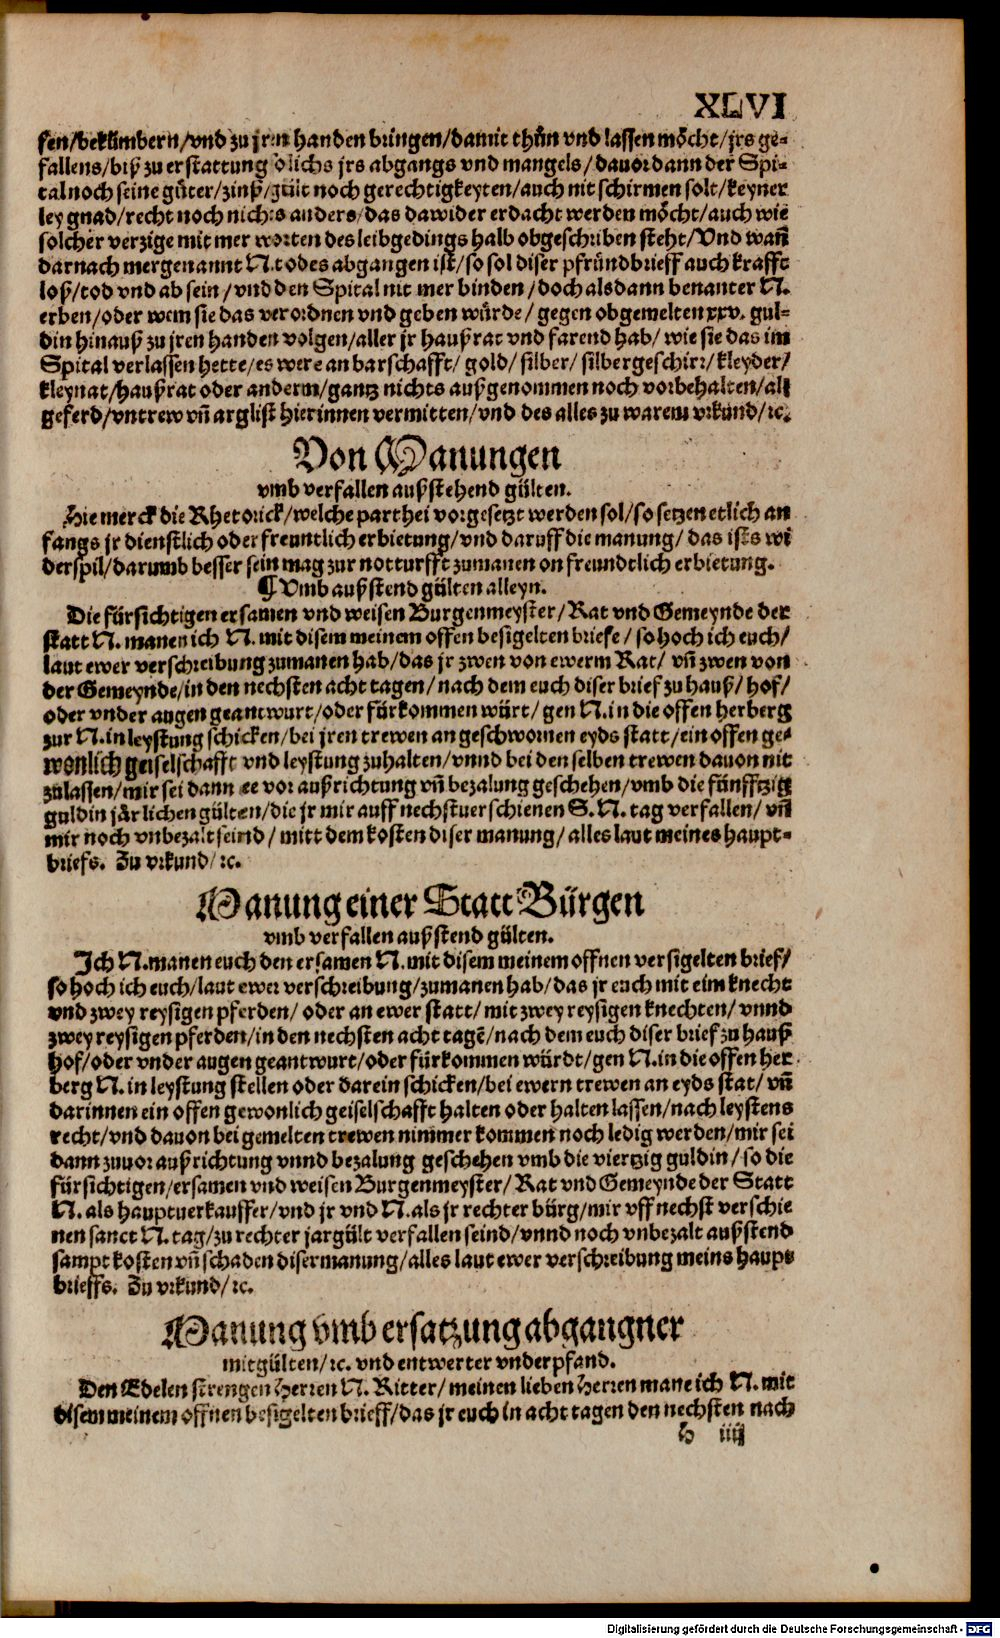 XLVI
fen/bekümbern/vnd zu jren handen bringen/damit thůn vnd lassen möcht/jrs ge-
fallens/biß zu erstattung solichs jrs abgangs vnd mangels/dauor dann der Spi-
tal noch seine güter/zinß/gült noch gerechtigkeyten/auch nit schirmen solt/keyner
ley gnad/recht noch nichts anders/das dawider erdacht werden möcht/auch wie
solcher verzige mit mer worten des leibgedings halb obgeschriben steht/Vnd wañ
darnach mergenannt N. todes abgangen ist/so sol diser pfründbrieff auch krafft
loß/tod vnd ab sein/vnd den Spital nit mer binden/doch alsdann benanter N.
erben/oder wem sie das verordnen vnd geben würde/gegen obgemelten xxv. gul-
din hinauß zu jren handen volgen/aller jr haußrat vnd farend hab/wie sie das im
Spital verlassen hette/es were an barschafft/gold/silber/silbergeschirr/kleyder/
kleynat/haußrat oder anderm/gantz nichts außgenommen noch vorbehalten/all
geferd/vntrew vñ arglist hierinnen vermitten/vnd des alles zu warem vrkund/ꝛc.
Von Manungen
vmb verfallen außstehend gülten.
Hie merck die Rhetorick/welche parthei vorgesetzt werden sol/so setzen etlich an
fangs jr dienstlich oder freuntlich erbietung/vnd daruff die manung/das ists wi
derspil/darumb besser sein mag zur notturfft zumanen on freundtlich erbietung.
¶ Vmb außstend gülten alleyn.
Die fürsichtigen ersamen vnd weisen Burgenmeyster/Rat vnd Gemeynde der
statt N. manen ich N. mit disem meinem offen besigelten briefe/so hoch ich euch/
laut ewer verschreibung zumanen hab/das jr zwen von ewerm Rat/vñ zwen von
der Gemeynde/in den nechsten acht tagen/nach dem euch diser brief zu hauß/hof/
oder vnder augen geantwurt/oder fürkommen würt/gen N. in die offen herberg
zur N. in leystung schicken/bei jren trewen an geschwornen eyds statt/ein offen ge-
wonlich geiselschafft vnd leystung zuhalten/vnnd bei den selben trewen dauon nit
zulassen/mir sei dann ee vor außrichtung vñ bezalung geschehen/vmb die fünfftzig
guldin järlichen gülten/die jr mir auff nechstuerschienen S. N. tag verfallen/vñ
mir noch vnbezalt seind/mitt dem kosten diser manung/alles laut meines haupt-
briefs. Zu vrkund/ꝛc.
Manung einer Statt Bürgen
vmb verfallen außstend gülten.
Ich N. manen euch den ersamen N. mit disem meinem offnen versigelten brief/
so hoch ich euch/laut ewer verschreibung/zumanen hab/das jr euch mit eim knecht
vnd zwey reysigen pferden/oder an ewer statt/mit zwey reysigen knechten/vnnd
zwey reysigen pferden/in den nechsten acht tagẽ/nach dem euch diser brief zu hauß
hof/oder vnder augen geantwurt/oder fürkommen würdt/gen N. in die offen her
berg N. in leystung stellen oder darein schicken/bei ewern trewen an eyds stat/vñ
darinnen ein offen gewonlich geiselschafft halten oder halten lassen/nach leystens
recht/vnd dauon bei gemelten trewen nimmer kommen noch ledig werden/mir sei
dann zuuor außrichtung vnnd bezalung geschehen vmb die viertzig guldin/so die
fürsichtigen/ersamen vnd weisen Burgenmeyster/Rat vnd Gemeynde der Statt
N. als hauptuerkauffer/vnd jr vnd N. als jr rechter bürg/mir vff nechst verschie
nen sanct N. tag/zu rechter jargült verfallen seind/vnnd noch vnbezalt außstend
sampt kosten vñ schaden diser manung/alles laut ewer verschreibung meins haupt
brieffs. Zu vrkund/ꝛc.
Manung vmb ersatzung abgangner
mitgülten/ꝛc. vnd entwerter vnderpfand.
Den Edelen strengen Herren N. Ritter/meinen lieben Herren mane ich N. mit
disem meinem offnen besigelten brieff/das jr euch in acht tagen den nechsten nach
H iiij
Digitalisierung gefördert durch die Deutsche Forschungsgemeinschaft - DFG